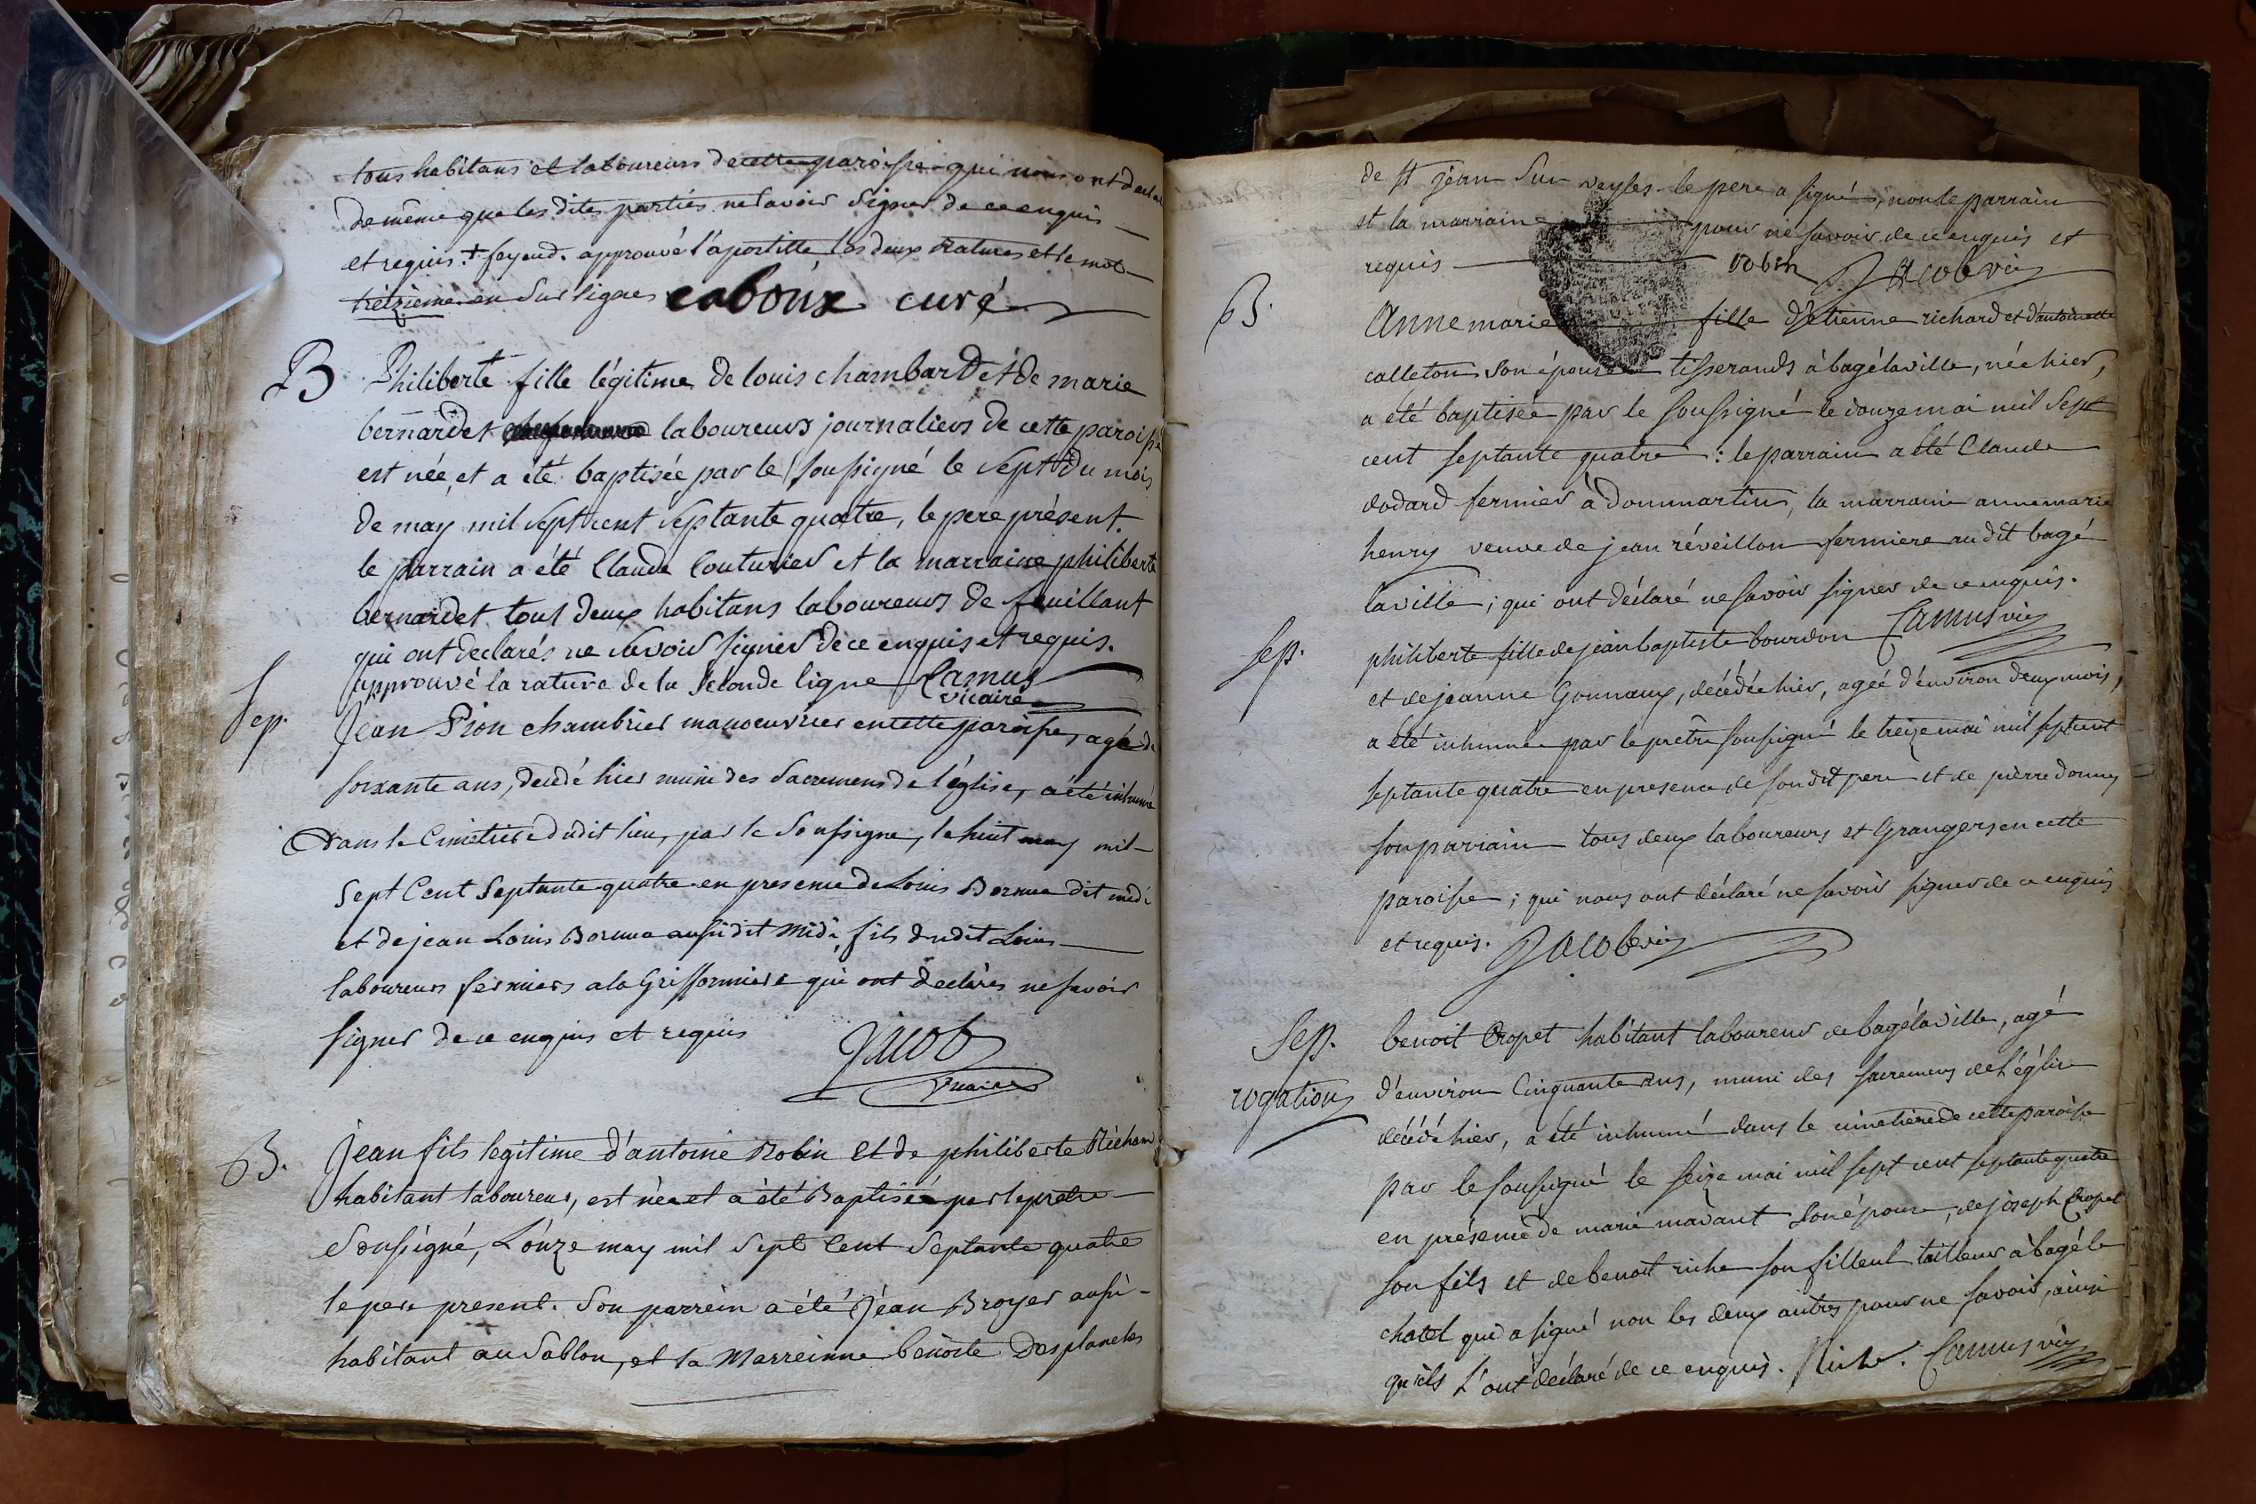 tous habitans et laboureurs de cette paroisse qui nous ont declaré
de même que les dites parties ne savoir signer de ce enquis
et requis. + feyend. approuvé l'apostille les deux ratures et le mot
trèizieme en sus lignes caboux curé
B Philiberte fille légitime de louis chambard et de marie
bernardet laboureurs journaliers de cette paroisse
est née, et a été baptisée par le soussigné le sept du mois
de may mil sept cent septante quatre, le pere présent.
le parrain a été Claude Couturier et la marraine philiberte
bernardet tous deux habitans laboureurs de feuillant
qui ont declarés ne savoir signer de ce enquis et requis.
approuvé la rature de la seconde ligne Camus
vicaire
Sep. Jean Pion chambrier manoeuvrier en cette paroisse, agé de
soixante ans, decedé hier muni des Sacremens de l'église, a été inhumé
dans le Cimetiere dudit lieu, par le Soussigne, le huit may mil
Sept Cent Septante quatre en presence de Louis Bornua dit midi
et de jean Louis Bornua aussi dit Midi, fils dudit Louis
laboureurs fermiers a la Griffonniere qui ont declarés ne savoir
signer de ce enquis et requis Jacob
vicaire
B. Jean fils legitime d'antoine Robin et de philiberte Richard
habitant laboureur, est née et a été Baptisée par le pretre
Soussigné, L'onze may mil Sept Cent Septante quatre
le pere present. Son parrein a été Jean Broyer aussi
habitant au Sablon, et la Marreinne benoite Desplanches
de st jean sur veyles le pere a signé, non le parrain
et la marraine pour ne savoir de ce enquis et
requis robin Jacob vic
B. Anne marie fille d'etienne richard et d'antoinette
calleton son épouse tisserands à bagélaville, née hier,
a été baptisée par le soussigné le douze mai mil sept
cent septante quatre : le parrain a été Claude
dodard fermier à dommartin, la marraine annemarie
henry veuve de jean réveillon fermiere audit bagé
laville ; qui ont déclaré ne savoir signer de ce enquis.
Camus vic
Sep. philiberte fille de jean baptiste bourdon
et de jeanne Gonnaux, décédée hier, agée d'environ deux mois,
a été inhumée par le prêtre soussigné le treize mai mil sept cent
septante quatre en presence de son dit pere et de pierre donny
son parrain tous deux laboureurs et Grangers en cette
paroisse ; qui nous ont déclaré ne savoir signer de ce enquis
et requis. Jacob vic
Sep. benoit Cropet habitant laboureur de bagélaville, agé
rogation d'environ Cinquante ans, muni des sacremens de l'église
décédé hier, a été inhumé dans le cimetiere de cette paroisse
par le soussigné le seize mai mil sept cent septante quatre
en présence de marie mavant son épouse, de joseph Cropet
son fils et de benoit riche son filleul tailleur à bagé le
chatel qui a signé non les deux autres pour ne savoir, ainsi
qu'ils l'ont déclaré de ce enquis. Riche. Camus vic